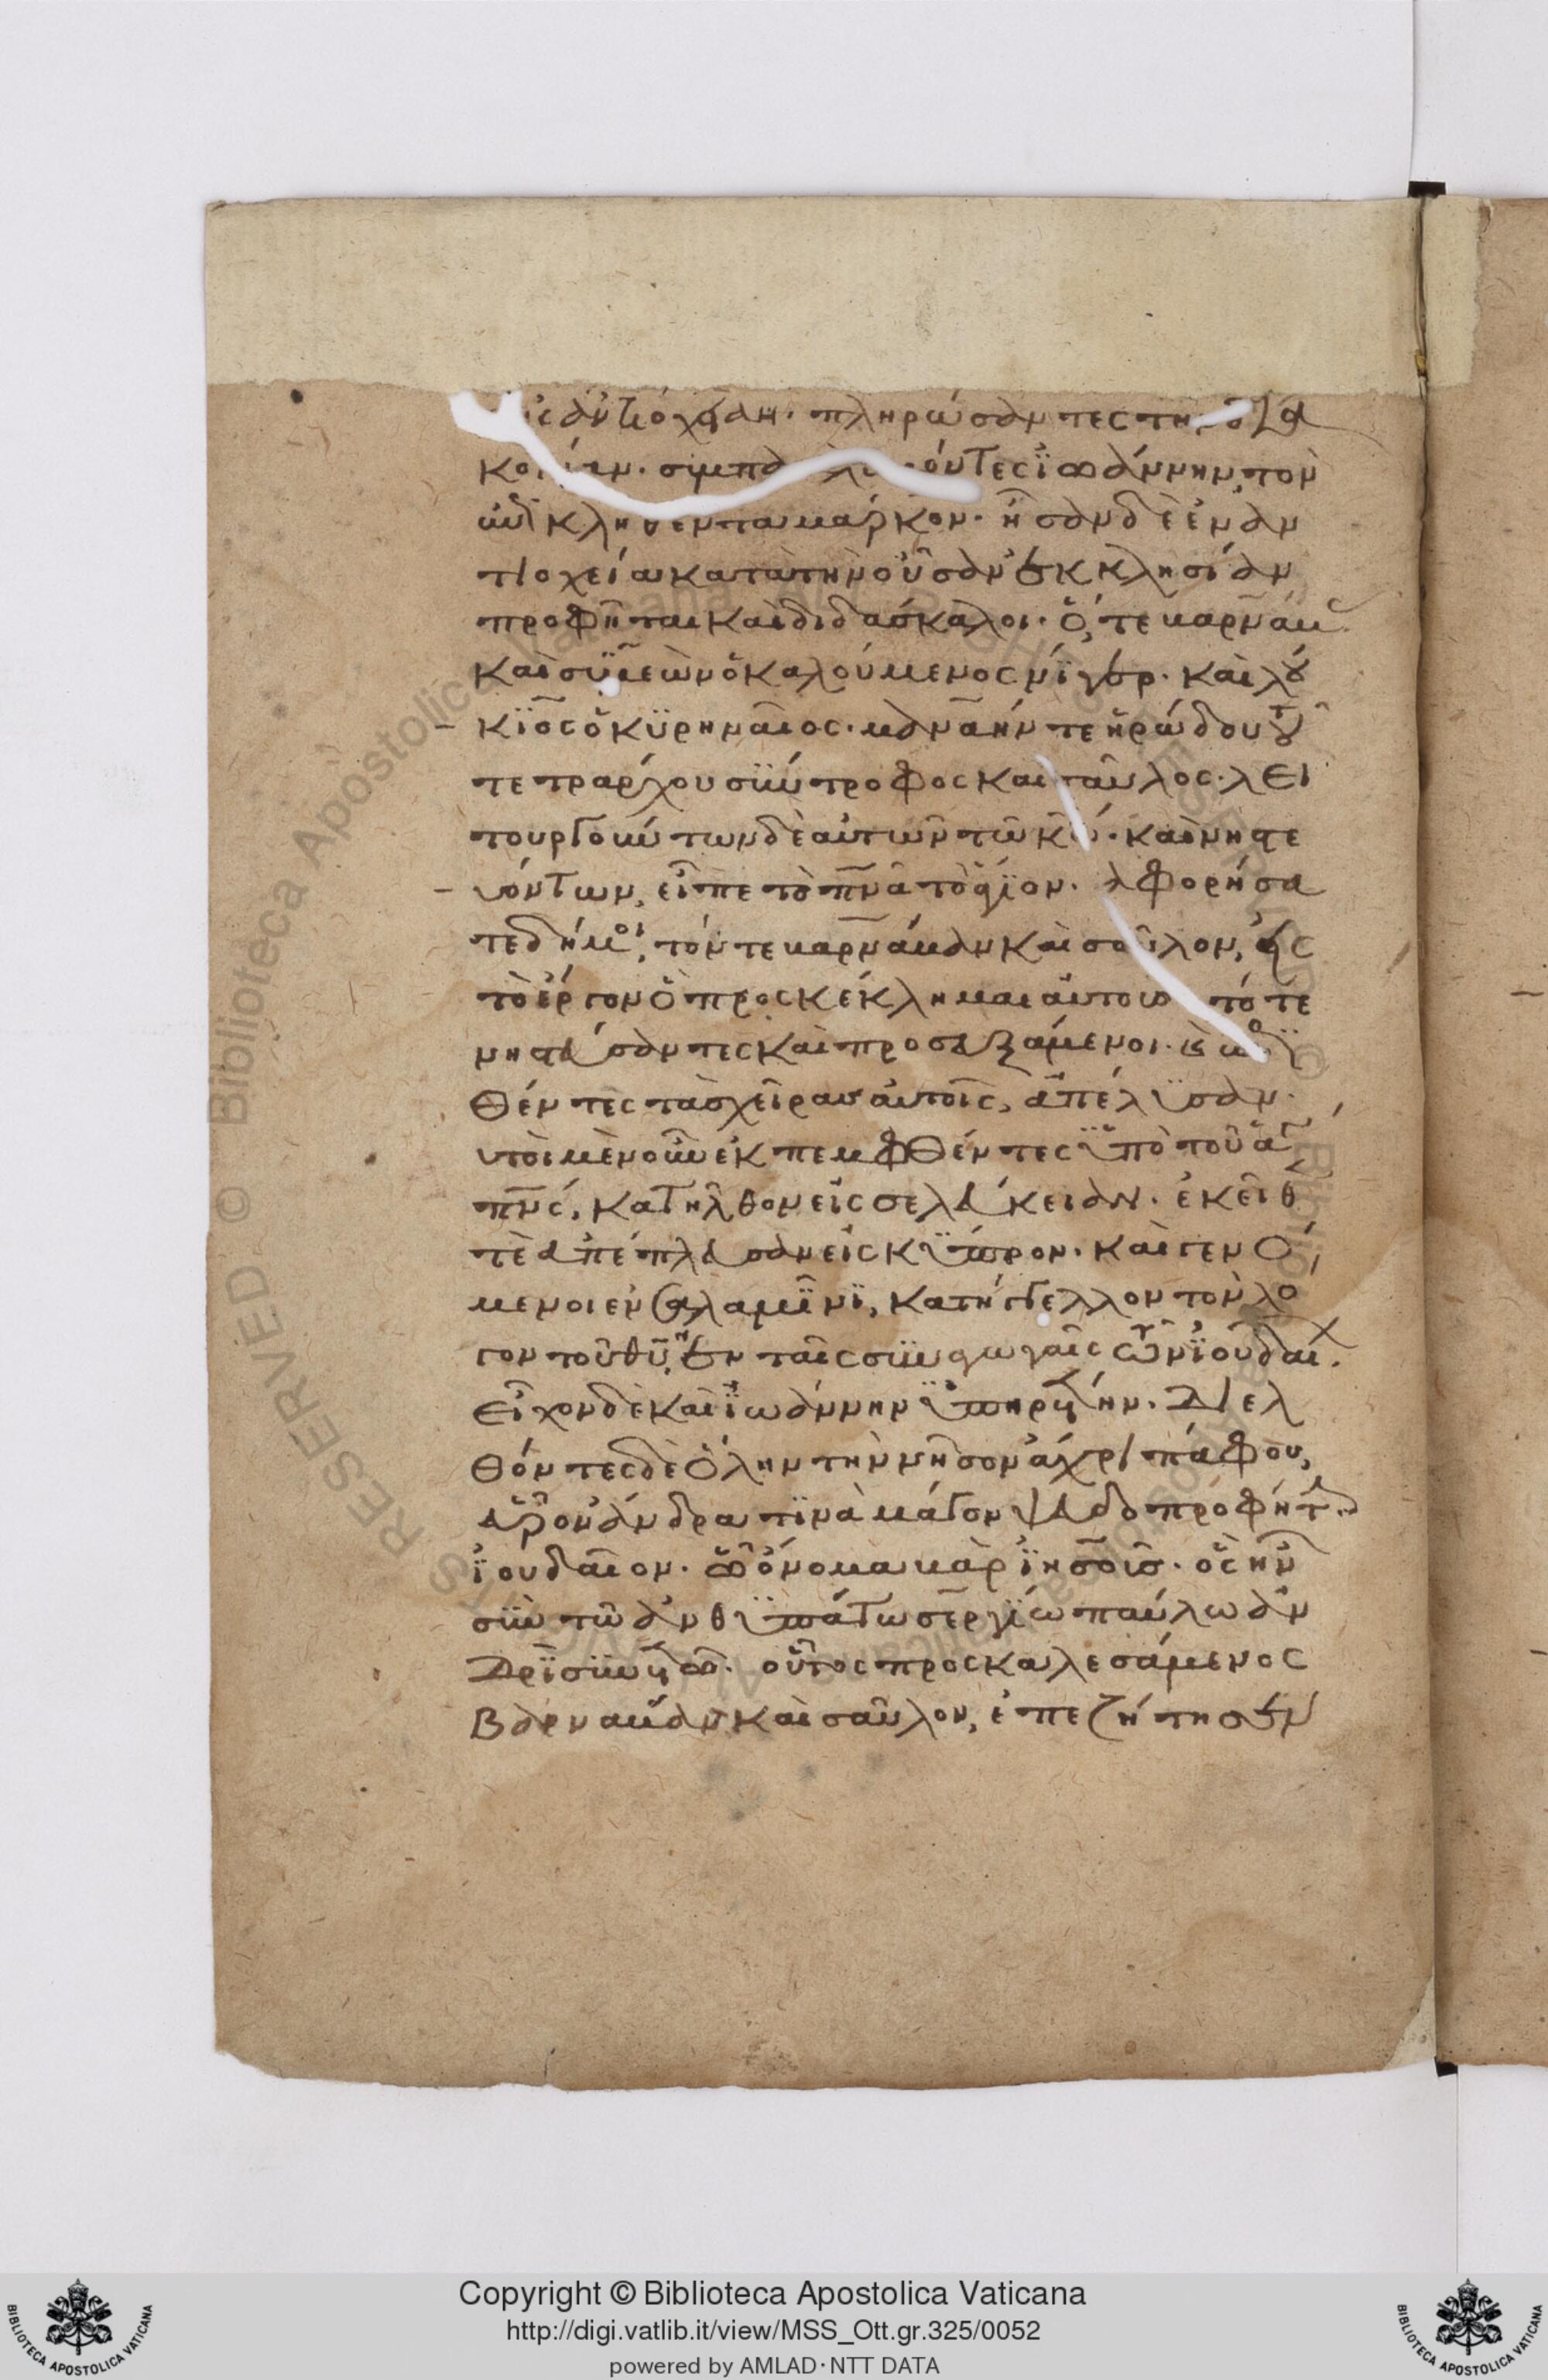 εἰς ἀντιόχειαν. πληρώσαντες τὴν δια
κονίαν. συμπαραλαβόντες ἰωάννην τὸν
ἐπικληθέντα μάρκον. ἦσαν δὲ ἐν ἀν
τιοχεία κατὰ τὴν οὖσαν ἐκκλησίαν
προφῆται καὶ διδάσκαλοι. ὅ, τε βαρνάβ
καὶ συμεὼν ὁ καλούμενος νίγερ. καὶ λού
κϊος ὁ κϋρηναῖος. μαναήν τε ἡρώδου τοῦ
τετράρχου σύντροφος καὶ παῦλος. λει
τουργούντων δὲ αὐτῶν τῶ κῶ. καὶ νηστε
υόντων, εἶπε τὸ πνᾶ τὸ ἅγϊον. ἀφορήσα
τε δή μοι, τόν τε βαρνάβαν καὶ σαῦλον, εἰς
τὸ ἔργον ὃ προσκέκλημαι αὐτούς τότε
νηστεύσαντες καὶ προσευξάμενοι. καὶ ἐπι
θέντες τὰς χεῖρας αὐτοῖς, ἀπέλϋσαν.
οὗτοι μὲν οὖν ἐκπεμφθέντες ϋπὸ τοῦ ἁγ
πνς, κατῆλθον εἰς σελεύκειαν. ἐκεῖθ
τὲ ἀπέπλευσαν εἰς κύπρον. καὶ γενό
μενοι ἐν σαλαμῖνϊ, κατήγγελλον τὸν λό
γον τοῦ θῦ, ἐν ταῖς συναγωγαῖς τῶν ϊουδαί.
εἶχον δὲ καὶ ϊωάννην ϋπηρέτην. διελ
θόντες δὲ ὅλην τὴν νῆσον ἄχρι πάφου,
εὗρον ἄνδρα τϊνὰ μάγον ψευδοπροφήτην
ϊουδαῖον. ὧ ὄνομα βὰρ ϊησοῦς. ὃς ἦν
σὺν τῶ ἀνθϋπάτω σεργίω παύλω ἀν
δρὶ συνετῶ. οὗτος προσκαλεσάμενος
βαρνάβαν καὶ σαῦλον, ἐπεζήτησεν
Copyright © Biblioteca Apostolica Vaticana
http://digi.vatlib.it/view/MSS_Ott.gr.325/0052
powered by AMLAD·NTT DATA